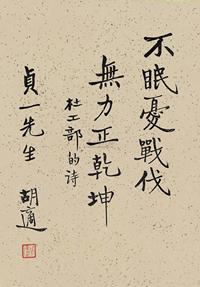 不眠憂戰伐
無力正乾坤
杜工部的诗
貞一先生
胡適